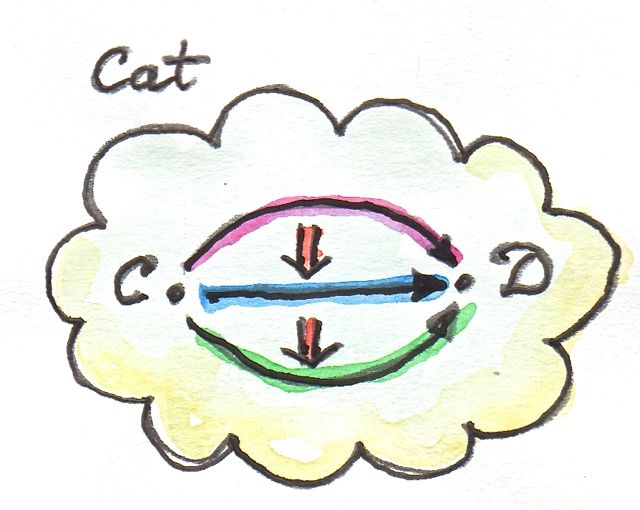 Cat
C D